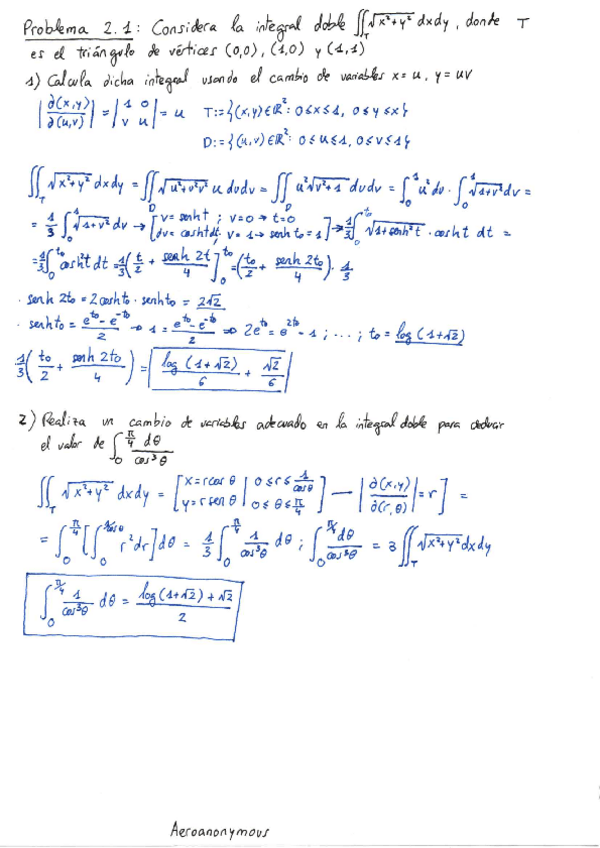 Problema 2.1: Considera la integral doble ∬_T √(x²+y²) dxdy, donde T
es el triángulo de vértices (0,0), (1,0) y (1,1)
1) Calcula dicha integral usando el cambio de variables x=u, y=uv
|∂(x,y)/∂(u,v)| = |1 0; v u| = u T:={(x,y)∈ℝ²: 0≤x≤1, 0≤y≤x}
D:={(u,v)∈ℝ²: 0≤u≤1, 0≤v≤1}
∬_T √(x²+y²) dxdy = ∬_D √(u²+u²v²) u dudv = ∬_D u²√(v²+1) dudv = ∫_0^1 u² du · ∫_0^1 √(1+v²) dv =
= 1/3 ∫_0^1 √(1+v²) dv → [v = senht ; v=0 → t=0; dv = coshtdt; v=1 → senh t₀=1] → 1/3 ∫_0^{t₀} √(1+senh²t) · cosht dt =
= 1/3 ∫_0^{t₀} cosh²t dt = 1/3 (t/2 + senh 2t/4]_0^{t₀} = (t₀/2 + senh 2t₀/4) · 1/3
· senh 2t₀ = 2cosht₀ · senht₀ = 2√2
· senht₀ = (e^{t₀} - e^{-t₀})/2 → 1 = (e^{t₀} - e^{-t₀})/2 ⇒ 2e^{t₀} = e^{2t₀} - 1 ; ... ; t₀ = log(1+√2)
1/3 (t₀/2 + senh 2t₀/4) = log(1+√2)/6 + √2/6
2) Realiza un cambio de variables adecuado en la integral doble para deducir
el valor de ∫_0^{π/4} dθ/cos³θ
∬_T √(x²+y²) dxdy = [x=rcosθ | 0≤r≤1/cosθ; y=rsenθ | 0≤θ≤π/4 — |∂(x,y)/∂(r,θ)| = r] =
= ∫_0^{π/4} [∫_0^{1/cosθ} r²dr] dθ = 1/3 ∫_0^{π/4} 1/cos³θ dθ ; ∫_0^{π/4} dθ/cos³θ = 3 ∬_T √(x²+y²) dxdy
∫_0^{π/4} 1/cos³θ dθ = (log(1+√2)+√2)/2
Aeroanonymous